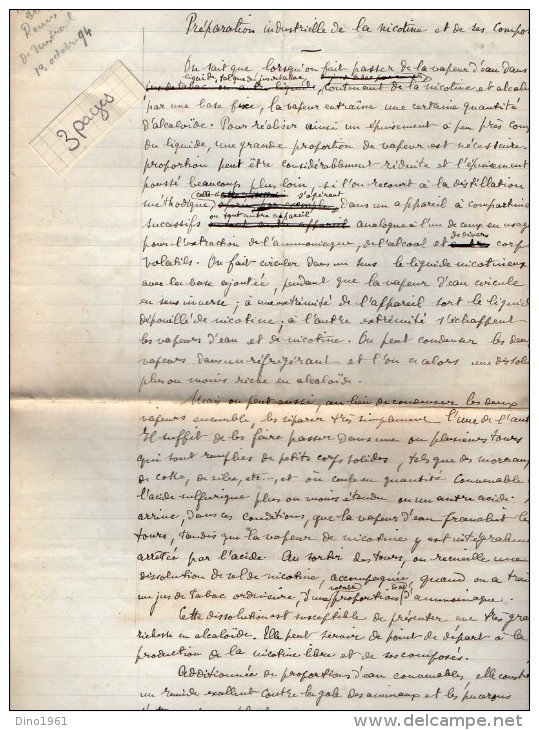 Préparation industrielle de la nicotine et de ses compos
13 octobre 94
3 pages
On sait que lorsqu'on fait passer de la vapeur d'eau dans
liquide, tel que du jus de tabac,
contenant de la nicotine et alcali
par une base fixe, la vapeur entraîne une certaine quantité
d'alcaloïde. Pour réaliser ainsi un épuisement à peu près com
du liquide, une grande proportion de vapeur est nécessaire.
proportion peut être considérablement réduite et l'épuisement
poussé beaucoup plus loin, si l'on recourt à la distillation
s'opérant
méthodique, dans un appareil à compartime
ou tout autre appareil
successifs analogue à l'un de ceux en usage
de divers
pour l'extraction de l'ammoniaque, de l'alcool et corps
volatils. On fait circuler dans un sens le liquide nicotineux
avec la base ajoutée, pendant que la vapeur d'eau circule
en sens inverse ; à une extrémité de l'appareil sort le liquid
dépouillé de nicotine ; à l'autre extrémité s'échappent
les vapeurs d'eau et de nicotine. On peut condenser les deux
vapeurs dans un réfrigérant et l'on a alors une dissolu
plus ou moins riche en alcaloïde.
Mais on peut aussi, au lieu de condenser les deux
vapeurs ensemble, les séparer très simplement l'une de l'aut
Il suffit de les faire passer dans une ou plusieurs tours
qui sont remplies de petits corps solides, tels que des morceaux
de coke, de silex, etc..., et où coule en quantité convenable
l'acide sulfurique plus ou moins étendu ou un autre acide.
arrive, dans ces conditions, que la vapeur d'eau franchit le
tours, tandis que la vapeur de nicotine y est intégralem
arrêtée par l'acide. Au sortir des tours, on recueille une
dissolution de sel de nicotine, accompagnée, quand on a trai
un jus de tabac ordinaire, d'une proportion d'ammoniaque.
Cette dissolution est susceptible de présenter une très gra
richesse en alcaloïde. Elle peut servir de point de départ à la
production de la nicotine libre et de ses composés.
Additionnée de proportions d'eau convenables, elle constit
un remède excellent contre la gale des animaux et les pucerons
Dino1961